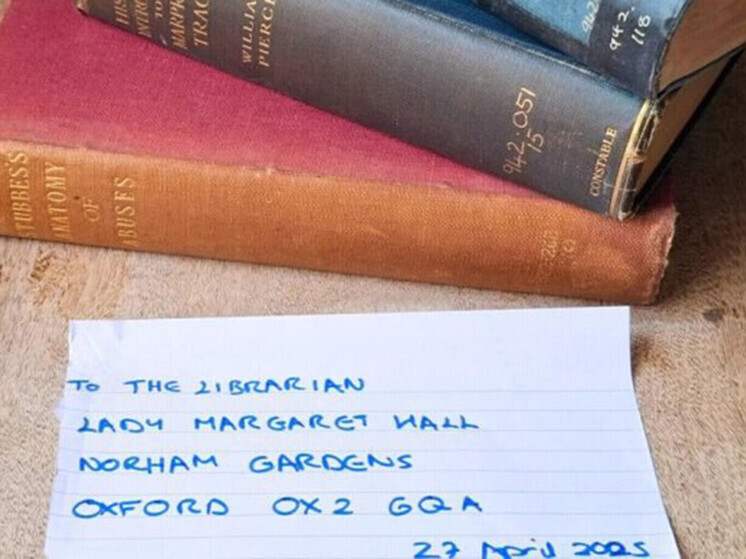 HIS
INTRO
TO
MARPR
TRAC
WILLIA
PIERC
942.051
15
CONSTABLE
942
942.
118
TUBBES'S
ANATOMY
OF
ABUSES
TO THE LIBRARIAN
LADY MARGARET HALL
NORHAM GARDENS
OXFORD OX2 6QA
27 April 2025